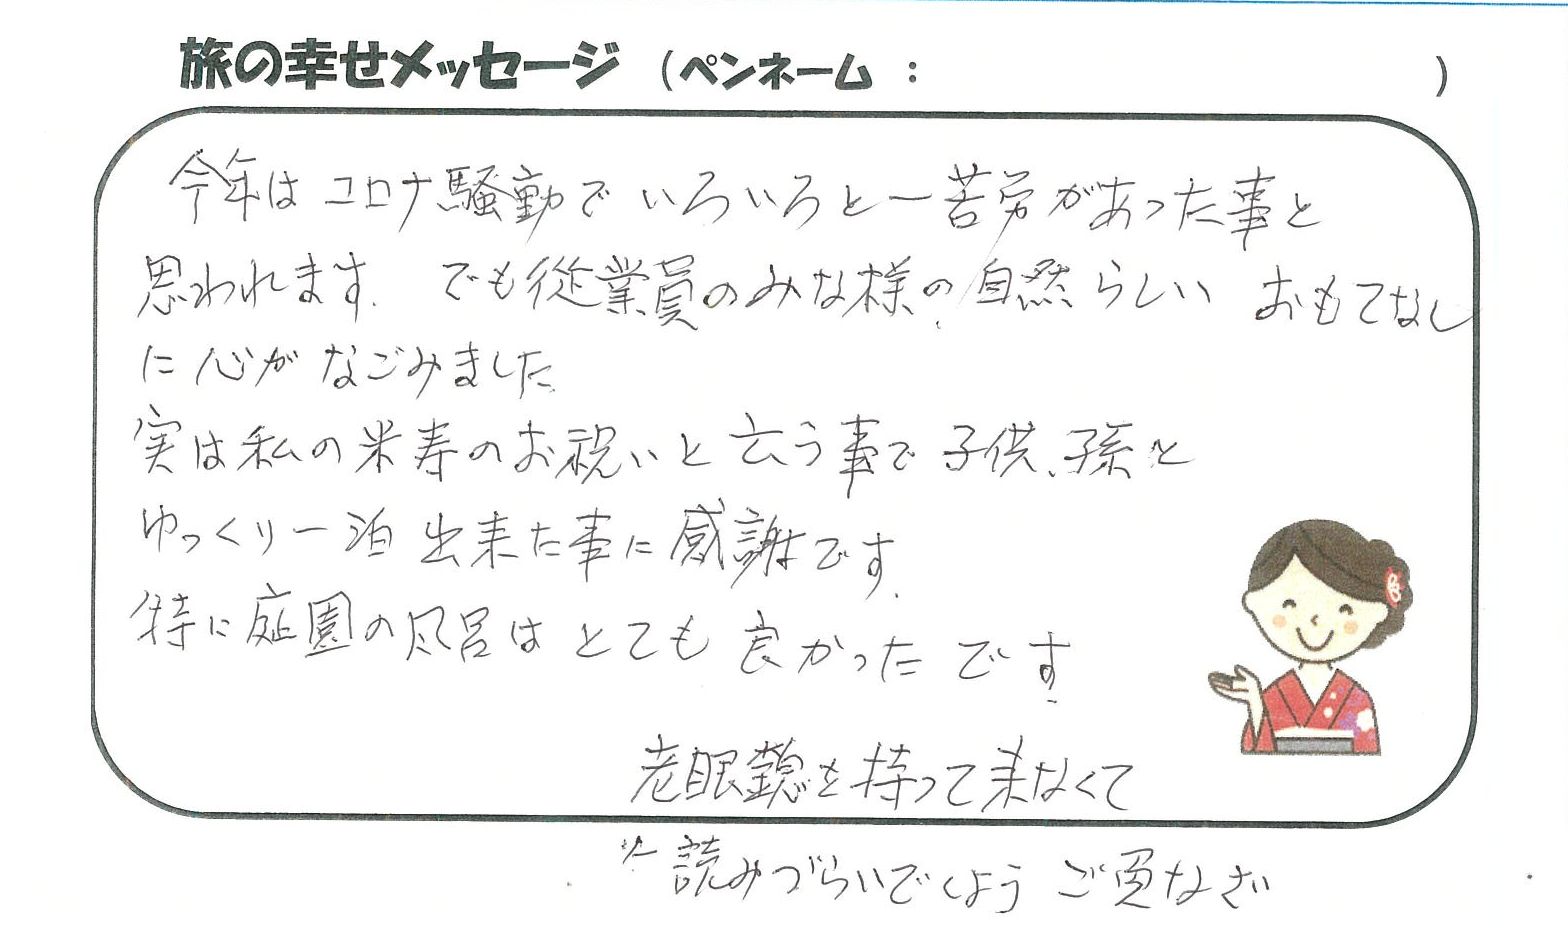 旅の幸せメッセージ (ペンネーム : )
今年はコロナ騒動でいろいろと一苦労があった事と
思われます. でも従業員のみな様の自然らしい おもてなし
に心がなごみました
実は私の米寿のお祝いと云う事で子供、孫と
ゆっくり一泊出来た事に感謝です.
特に庭園の風呂はとても良かったです.
老眼鏡を持って来なくて
読みづらいでしよう ご免なさい